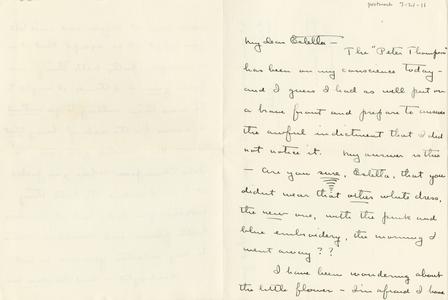 postmark 7-21-11
My dear Estella —
The "Peter Thompson"
has been on my conscience today —
and I guess I had as well put on
a brave front and prepare to answer
the awful indictment that I did
not notice it. My answer is this
— are you sure, Estella, that you
didn't wear that other white dress,
the new one, with the pink and
blue embroidery, the morning I
went away? ?
I have been wondering about
the little flower — I'm afraid I have